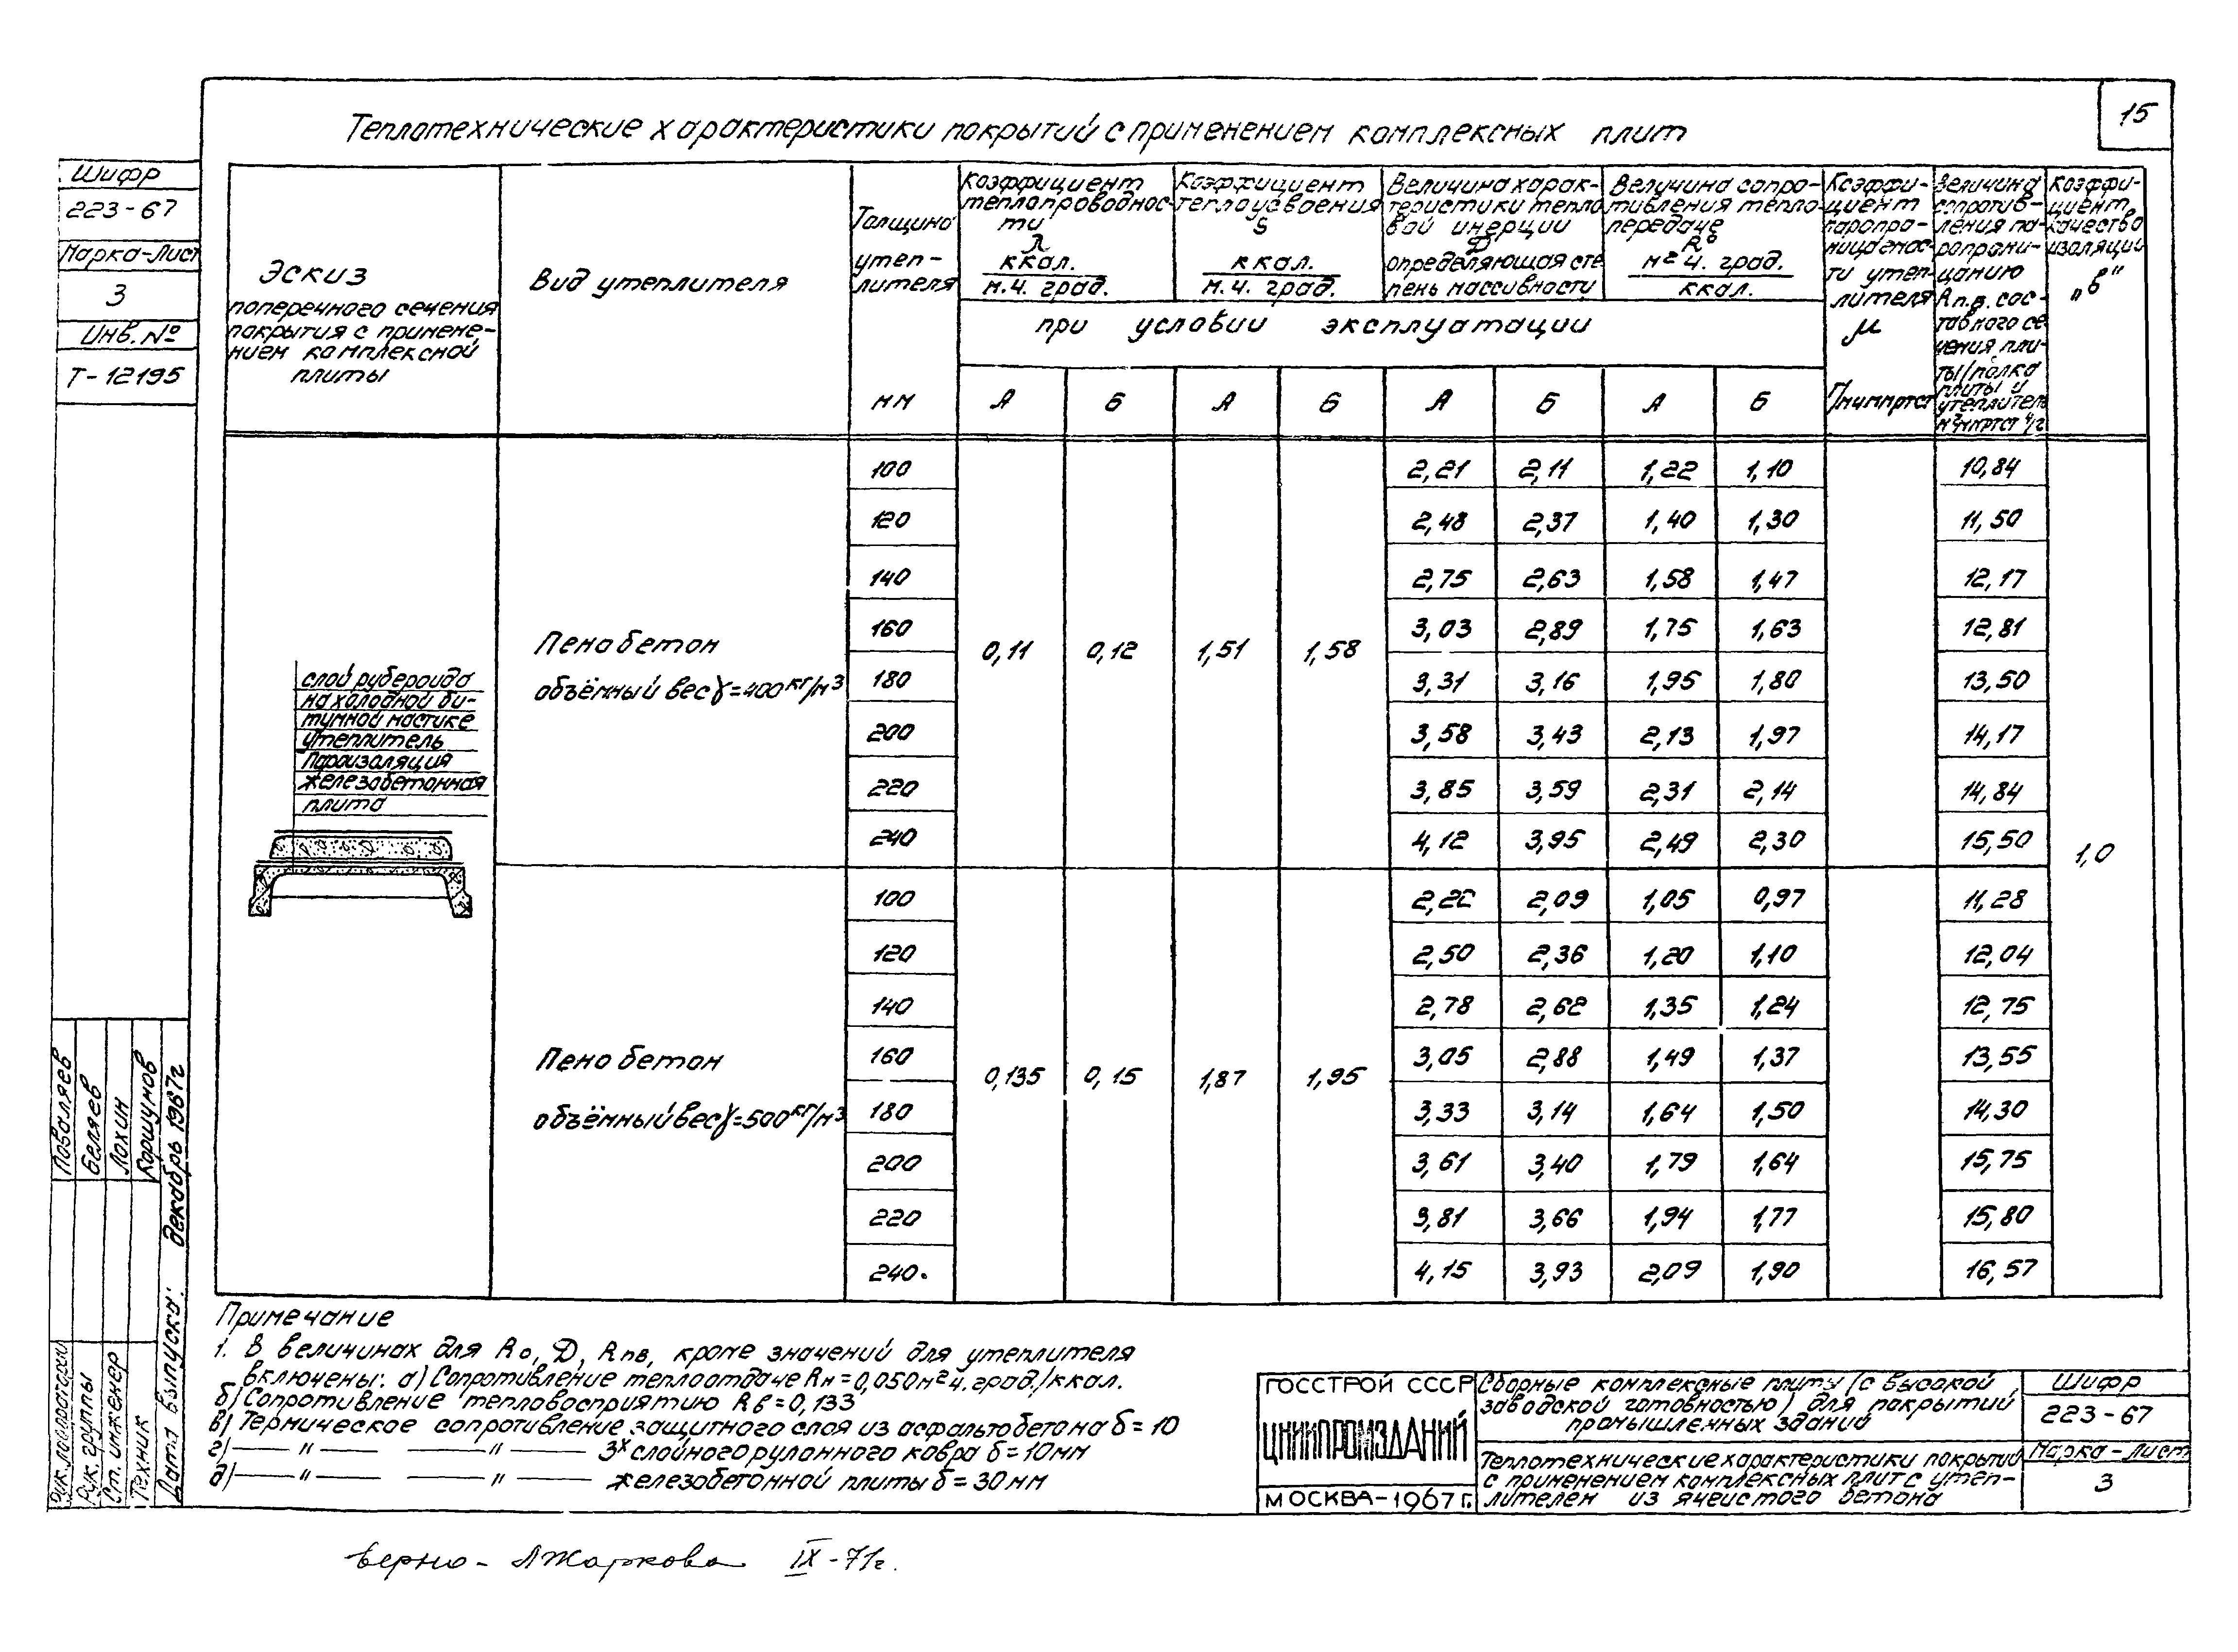 15
Теплотехнические характеристики покрытий с применением комплексных плит
Шифр
223-67
Марка-Лист
3
Инв. №
Т-12195
Эскиз
поперечного сечения
покрытия с примене-
нием комплексной
плиты
Вид утеплителя
Толщина
утеп-
лителя
мм
Коэффициент
теплопроводнос-
ти
λ
ккал.
м.ч. град.
Коэффициент
теплоусвоения
S
ккал.
м.ч. град.
Величина харак-
теристики тепло
вой инерции
D
определяющая сте
пень массивности
Величина сопро-
тивления тепло-
передаче
R⁰
м² ч. град.
ккал.
при условии эксплуатации
А Б А Б А Б А Б
Коэффи-
циент
паропро-
ницаемос-
ти утеп-
лителя
μ
Г/мчммртст
Величина
сопротив-
ления па-
ропрони-
цанию
Rп.в. сос-
тавного се-
чения пли-
ты (полка
плиты и
утеплитель
м²чммртст"/г
Коэффи-
циент
качества
изоляции
„в"
слой рубероида
на холодной би-
тумной мастике
утеплитель
Пароизоляция
железобетонная
плита
Пенобетон
объёмный вес γ=400кг/м3
0,11 0,12 1,51 1,58
100 2,21 2,11 1,22 1,10 10,84
120 2,48 2,37 1,40 1,30 11,50
140 2,75 2,63 1,58 1,47 12,17
160 3,03 2,89 1,75 1,63 12,81
180 3,31 3,16 1,95 1,80 13,50
200 3,58 3,43 2,13 1,97 14,17
220 3,85 3,59 2,31 2,14 14,84
240 4,12 3,95 2,49 2,30 15,50
1,0
Пенобетон
объёмный вес γ=500кг/м3
0,135 0,15 1,87 1,95
100 2,22 2,09 1,05 0,97 11,28
120 2,50 2,36 1,20 1,10 12,04
140 2,78 2,62 1,35 1,24 12,75
160 3,05 2,88 1,49 1,37 13,55
180 3,33 3,14 1,64 1,50 14,30
200 3,61 3,40 1,79 1,64 15,75
220 3,81 3,66 1,94 1,77 15,80
240. 4,15 3,93 2,09 1,90 16,57
Примечание
1. В величинах для Rо, D, Rпв, кроме значений для утеплителя
включены: а) Сопротивление теплоотдаче Rн=0,050м²ч.град./ккал.
б) Сопротивление тепловосприятию Rв=0,133
в) Термическое сопротивление защитного слоя из асфальтобетона δ=10
г) — " — — " — 3х слойного рулонного ковра δ=10мм
д) — " — — " — железобетонной плиты δ=30мм
Поваляев
Беляев
Лохин
Коршунов
Рук. лаборатории
Рук. группы
Ст. инженер
Техник
Дата выпуска: декабрь 1967г
ГОССТРОЙ СССР
ЦНИИПРОМЗДАНИЙ
МОСКВА-1967 г.
Сборные комплексные плиты (с высокой
заводской готовностью) для покрытий
промышленных зданий
Теплотехнические характеристики покрытий
с применением комплексных плит с утеп-
лителем из ячеистого бетона
Шифр
223-67
Марка-лист
3
Верно- ЛЖаркова IX-71г.